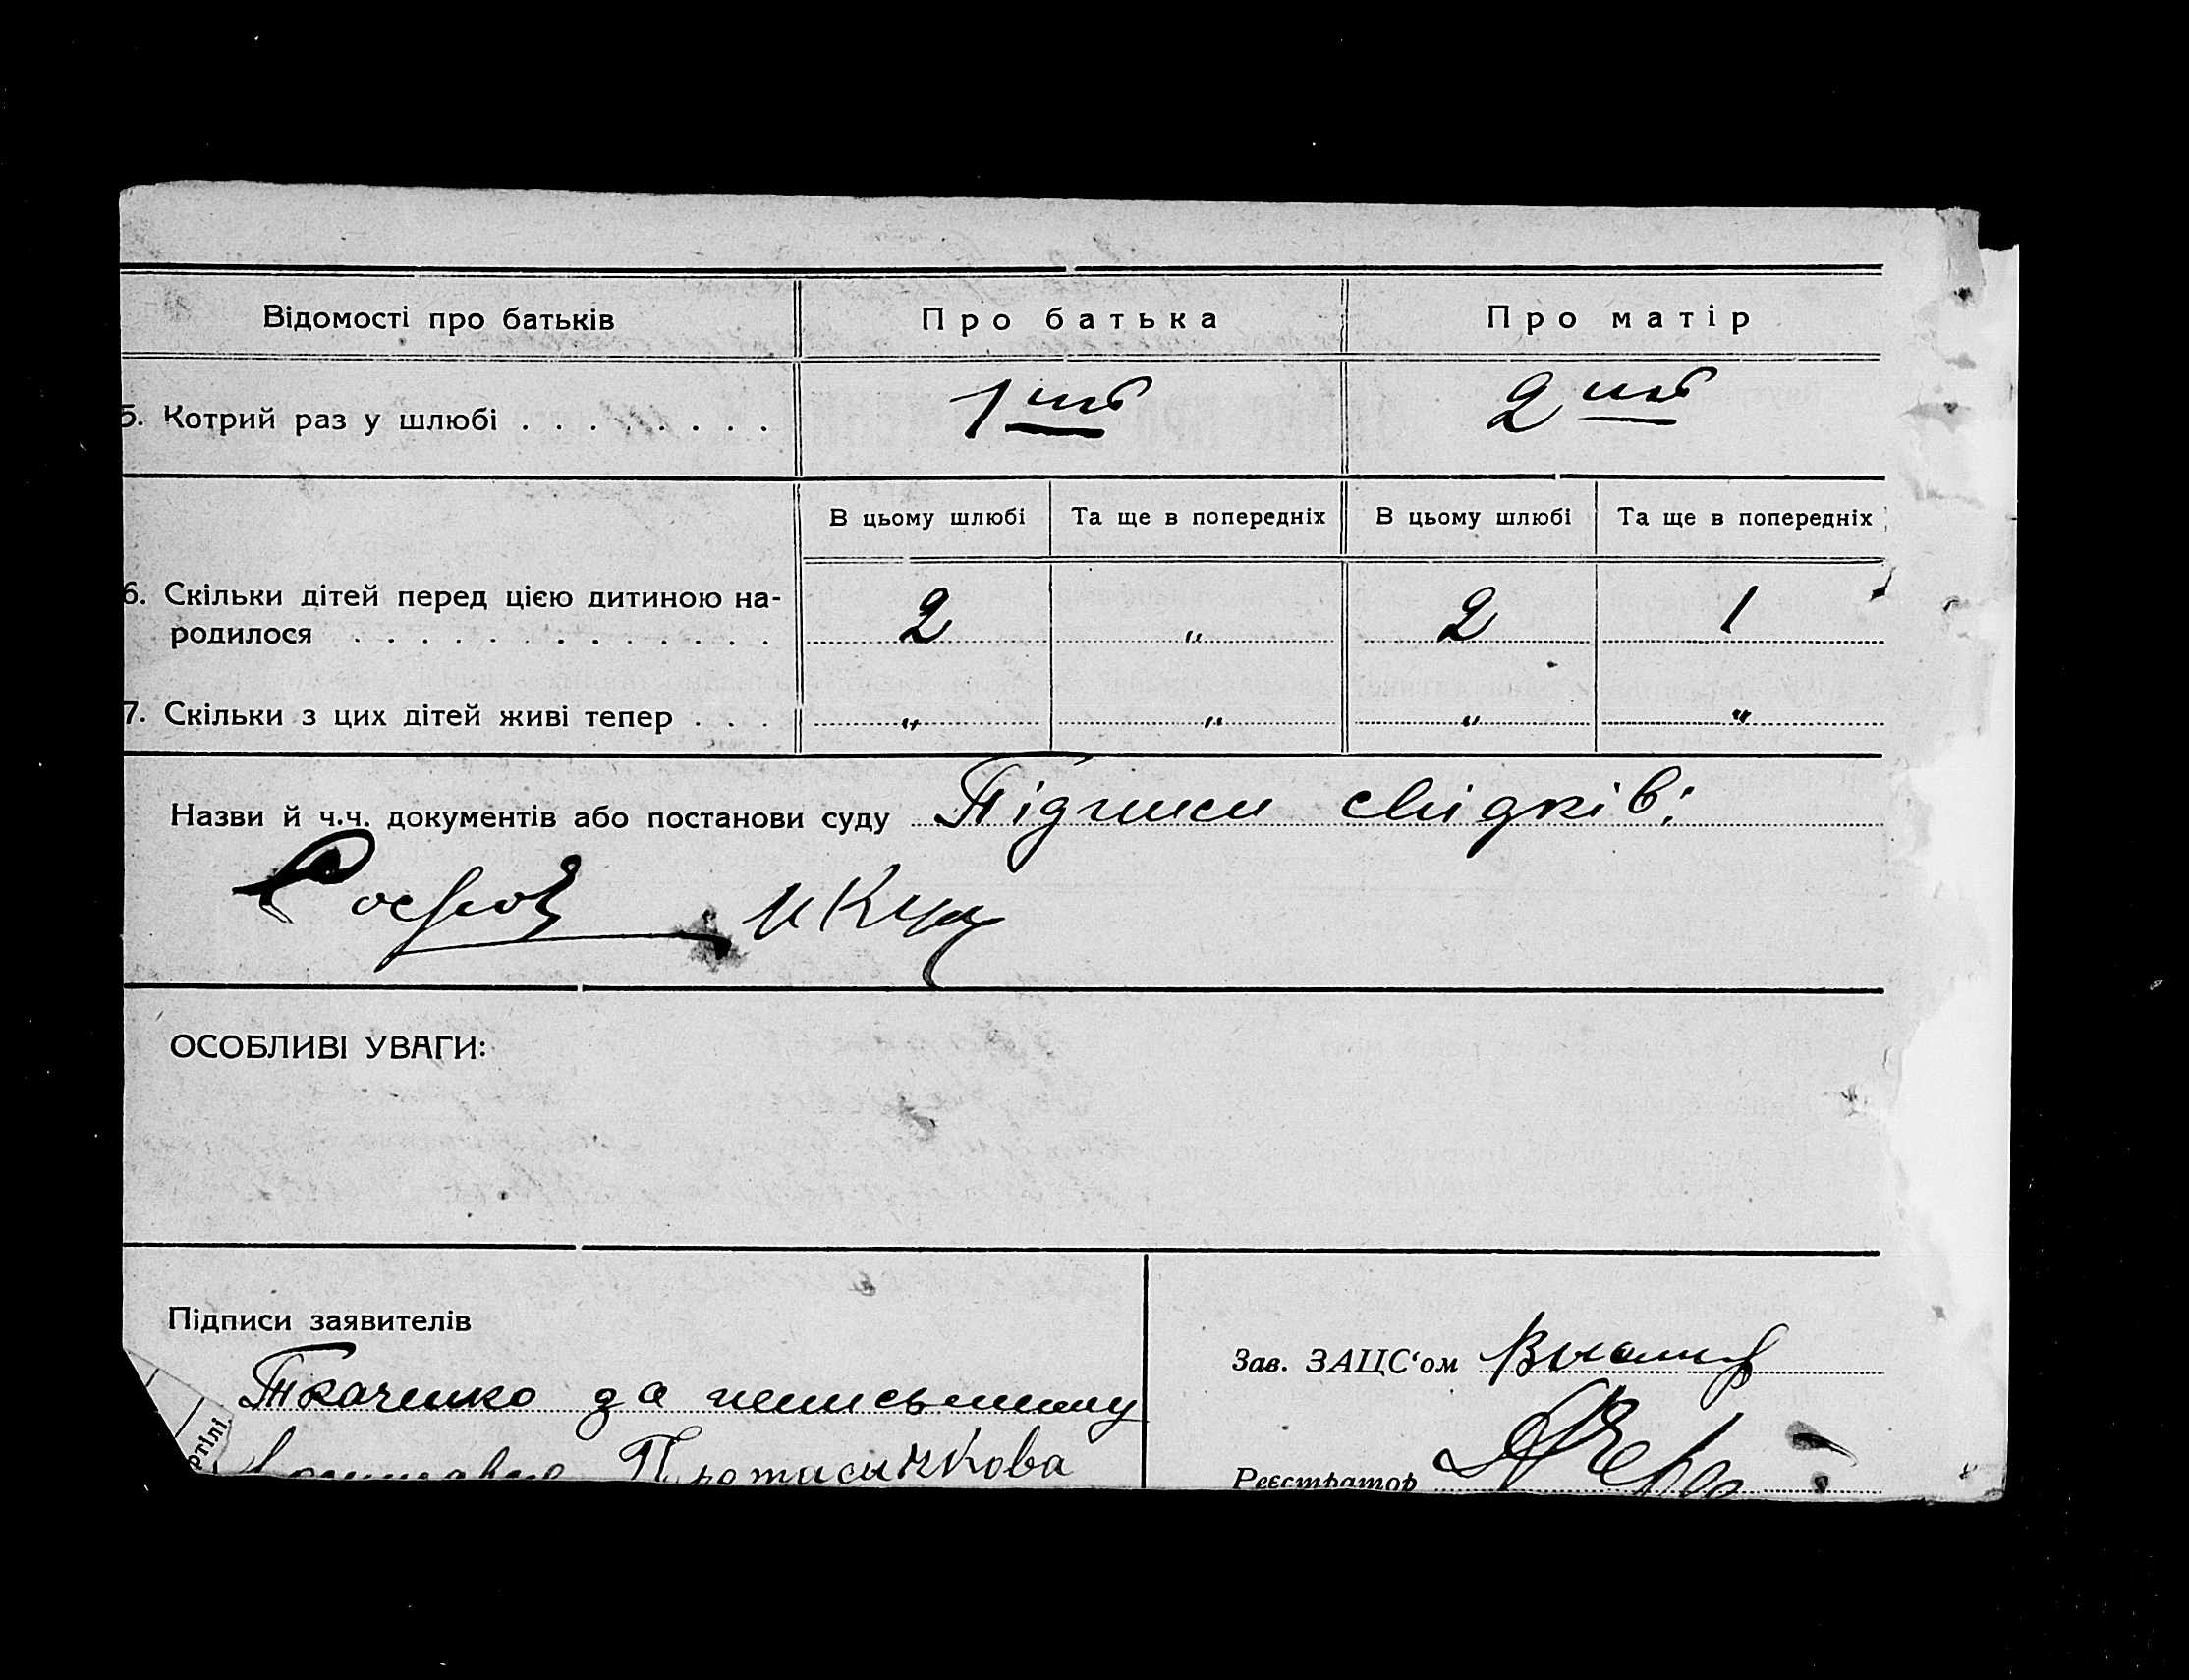 Відомості про батьків Про батька Про матір
5. Котрий раз у шлюбі . . . . . . . . 1 шлб 2 шлб
В цьому шлюбі Та ще в попередніх В цьому шлюбі Та ще в попередніх
6. Скільки дітей перед цією дитиною на-
родилося . . . . . . . . . . . . . 2 " 2 1
7. Скільки з цих дітей живі тепер . . . " " " "
Назви й ч.ч. документів або постанови суду Підписи свидків:
ОСОБЛИВІ УВАГИ:
Підписи заявителів
Зав. ЗАЦС'ом
Ткаченко за неписьменну
Протасі Чкова
Реєстратор